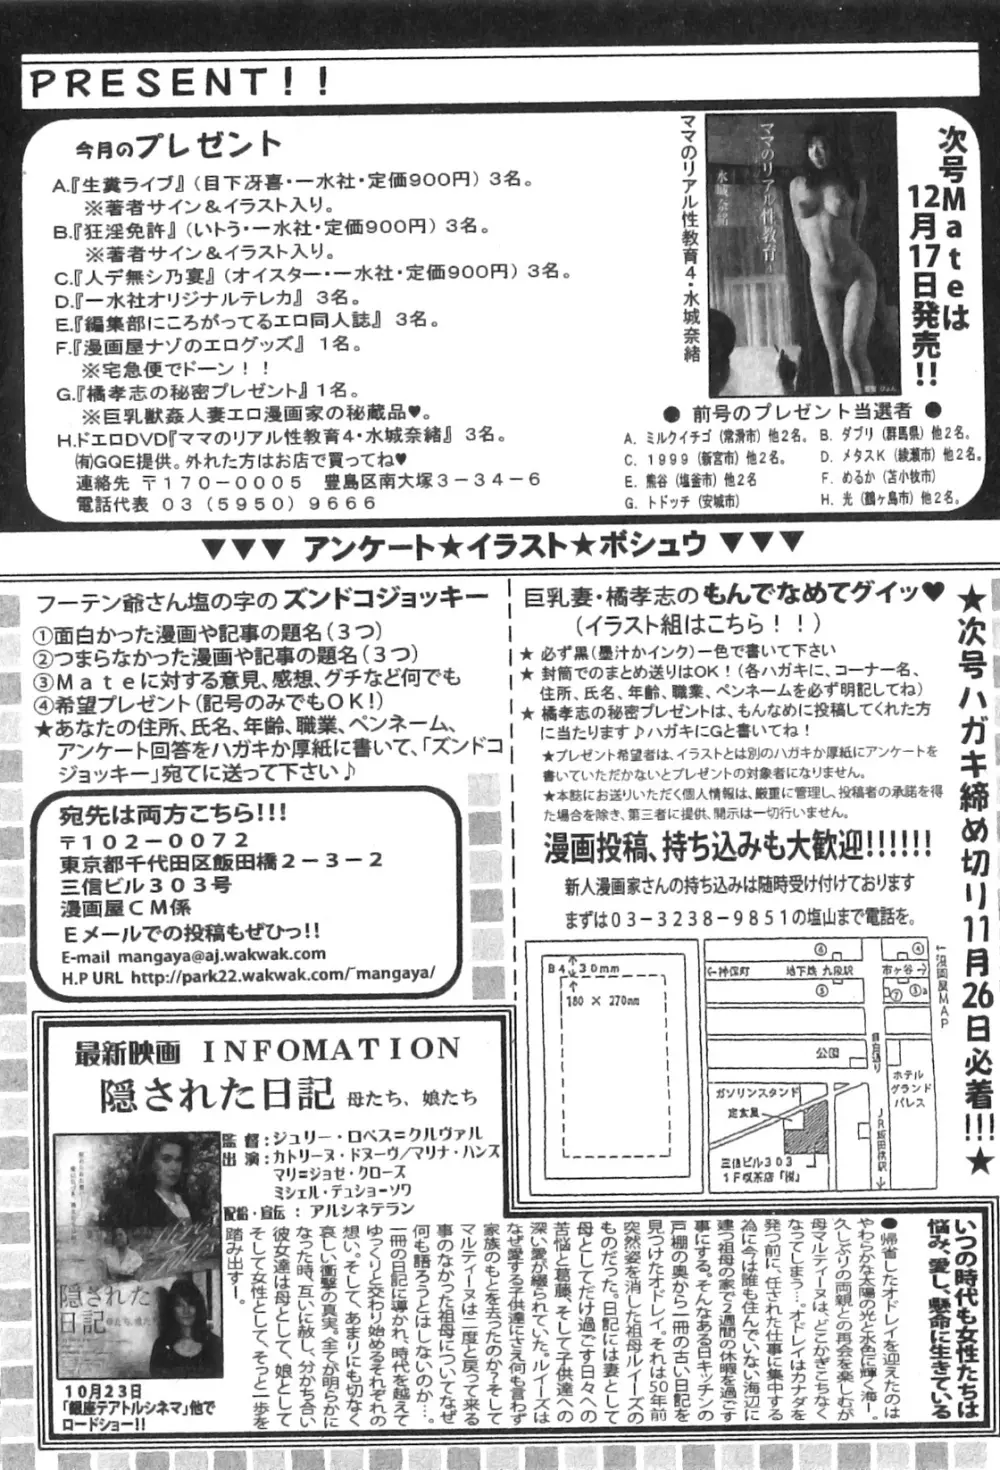 PRESENT!!
今月のプレゼント
A.『生糞ライブ』(目下冴喜・一水社・定価900円) 3名。
※著者サイン＆イラスト入り。
B.『狂淫免許』(いトう・一水社・定価900円) 3名。
※著者サイン＆イラスト入り。
C.『人デ無シ乃宴』(オイスター・一水社・定価900円) 3名。
D.『一水社オリジナルテレカ』 3名。
E.『編集部にころがってるエロ同人誌』 3名。
F.『漫画屋ナゾのエログッズ』 1名。
※宅急便でドーン！！
G.『橘孝志の秘密プレゼント』1名。
※巨乳獣姦人妻エロ漫画家の秘蔵品♥。
H.ドエロDVD『ママのリアル性教育4・水城奈緒』 3名。
㈲GQE提供。外れた方はお店で買ってね♥
連絡先 〒170-0005 豊島区南大塚3-34-6
電話代表 03 (5950) 9666
ママのリアル性教育4・水城奈緒
ママのリアル性教育4
水城奈緒
次号Mateは
12月17日発売!!
● 前号のプレゼント当選者 ●
A. ミルクイチゴ (常滑市) 他2名。
B. ダブリ (群馬県) 他2名。
C. 1999 (新宮市) 他2名。
D. メタスK (綾瀬市) 他2名。
E. 熊谷 (塩釜市) 他2名
F. めるか (苫小牧市)
G. トドッチ (安城市)
H. 光 (鶴ヶ島市) 他2名。
▼▼▼ アンケート★イラスト★ボシュウ ▼▼▼
フーテン爺さん塩の字の ズンドコジョッキー
①面白かった漫画や記事の題名(3つ)
②つまらなかった漫画や記事の題名(3つ)
③Mateに対する意見、感想、グチなど何でも
④希望プレゼント(記号のみでもOK!)
★あなたの住所、氏名、年齢、職業、ペンネーム、
アンケート回答をハガキか厚紙に書いて、「ズンドコ
ジョッキー」宛てに送って下さい♪
宛先は両方こちら!!!
〒102-0072
東京都千代田区飯田橋2-3-2
三信ビル303号
漫画屋CM係
Eメールでの投稿もぜひっ!!
E-mail mangaya@aj.wakwak.com
H.P URL http://park22.wakwak.com/~mangaya/
巨乳妻・橘孝志の もんでなめてグイッ♥
(イラスト組はこちら！！)
★ 必ず黒(墨汁かインク)一色で書いて下さい
★ 封筒でのまとめ送りはOK!(各ハガキに、コーナー名、
住所、氏名、年齢、職業、ペンネームを必ず明記してね)
★ 橘孝志の秘密プレゼントは、もんなめに投稿してくれた方
に当たります♪ハガキにGと書いてね!
★プレゼント希望者は、イラストとは別のハガキか厚紙にアンケートを
書いていただかないとプレゼントの対象者になりません。
★本誌にお送りいただく個人情報は、厳重に管理し、投稿者の承諾を得
た場合を除き、第三者に提供、開示は一切行いません。
漫画投稿、持ち込みも大歓迎!!!!!!
新人漫画家さんの持ち込みは随時受け付けております
まずは03-3238-9851の塩山まで電話を。
★次号ハガキ締め切り11月26日必着!!!★
B4
30mm
180 × 270mm
←漫画屋MAP
←神保町
地下鉄 九段駅
市ヶ谷→
公園
目白通り
ホテル
グランド
パレス
ガソリンスタンド
定食屋
三信ビル303
1F喫茶店「桜」
JR飯田橋駅
最新映画 INFOMATION
隠された日記 母たち、娘たち
監督:ジュリー・ロペス=クルヴァル
出演:カトリーヌ・ドヌーヴ/マリナ・ハンズ
マリ=ジョゼ・クローズ
ミシェル・デュショーソワ
配給・宣伝:アルシネテラン
隠された
日記
母たち、娘たち
10月23日
「銀座テアトルシネマ」他で
ロードショー!!
いつの時代も女性たちは
悩み、愛し、懸命に生きている
●帰省したオドレイを迎えたのは
やわらかな太陽の光と水色に輝く海―。
久しぶりの両親との再会を楽しむが
母マルティーヌは、どこかぎこちなく
なってしまう…。オドレイはカナダを
発つ前に、任された仕事に集中する
為に今は誰も住んでいない海辺に
建つ祖母の家で2週間の休暇を過ごす
事にする。そんなある日キッチンの
戸棚の奥から一冊の古い日記を
見つけたオドレイ。それは50年前
突然姿を消した祖母ルイーズの
ものだった。日記には妻として
母としてだけ過ごす日々への
苦悩と葛藤、そして子供達への
深い愛が綴られていた。ルイーズは
なぜ愛する子供達にさえ何も言わず
家族のもとを去ったのか？そして
マルティーヌは二度と戻って来る
事のなかった祖母についてなぜ
何も語ろうとはしないのか…。
一冊の日記に導かれ、時代を越えて
ゆっくりと交わり始めるそれぞれの
想い。そして、あまりにも切なく
哀しい衝撃の真実。全てが明らかに
なった時、互いに赦し、分かち合い
彼女達は母として、娘として
そして女性として、そっと一歩を
踏み出す―。